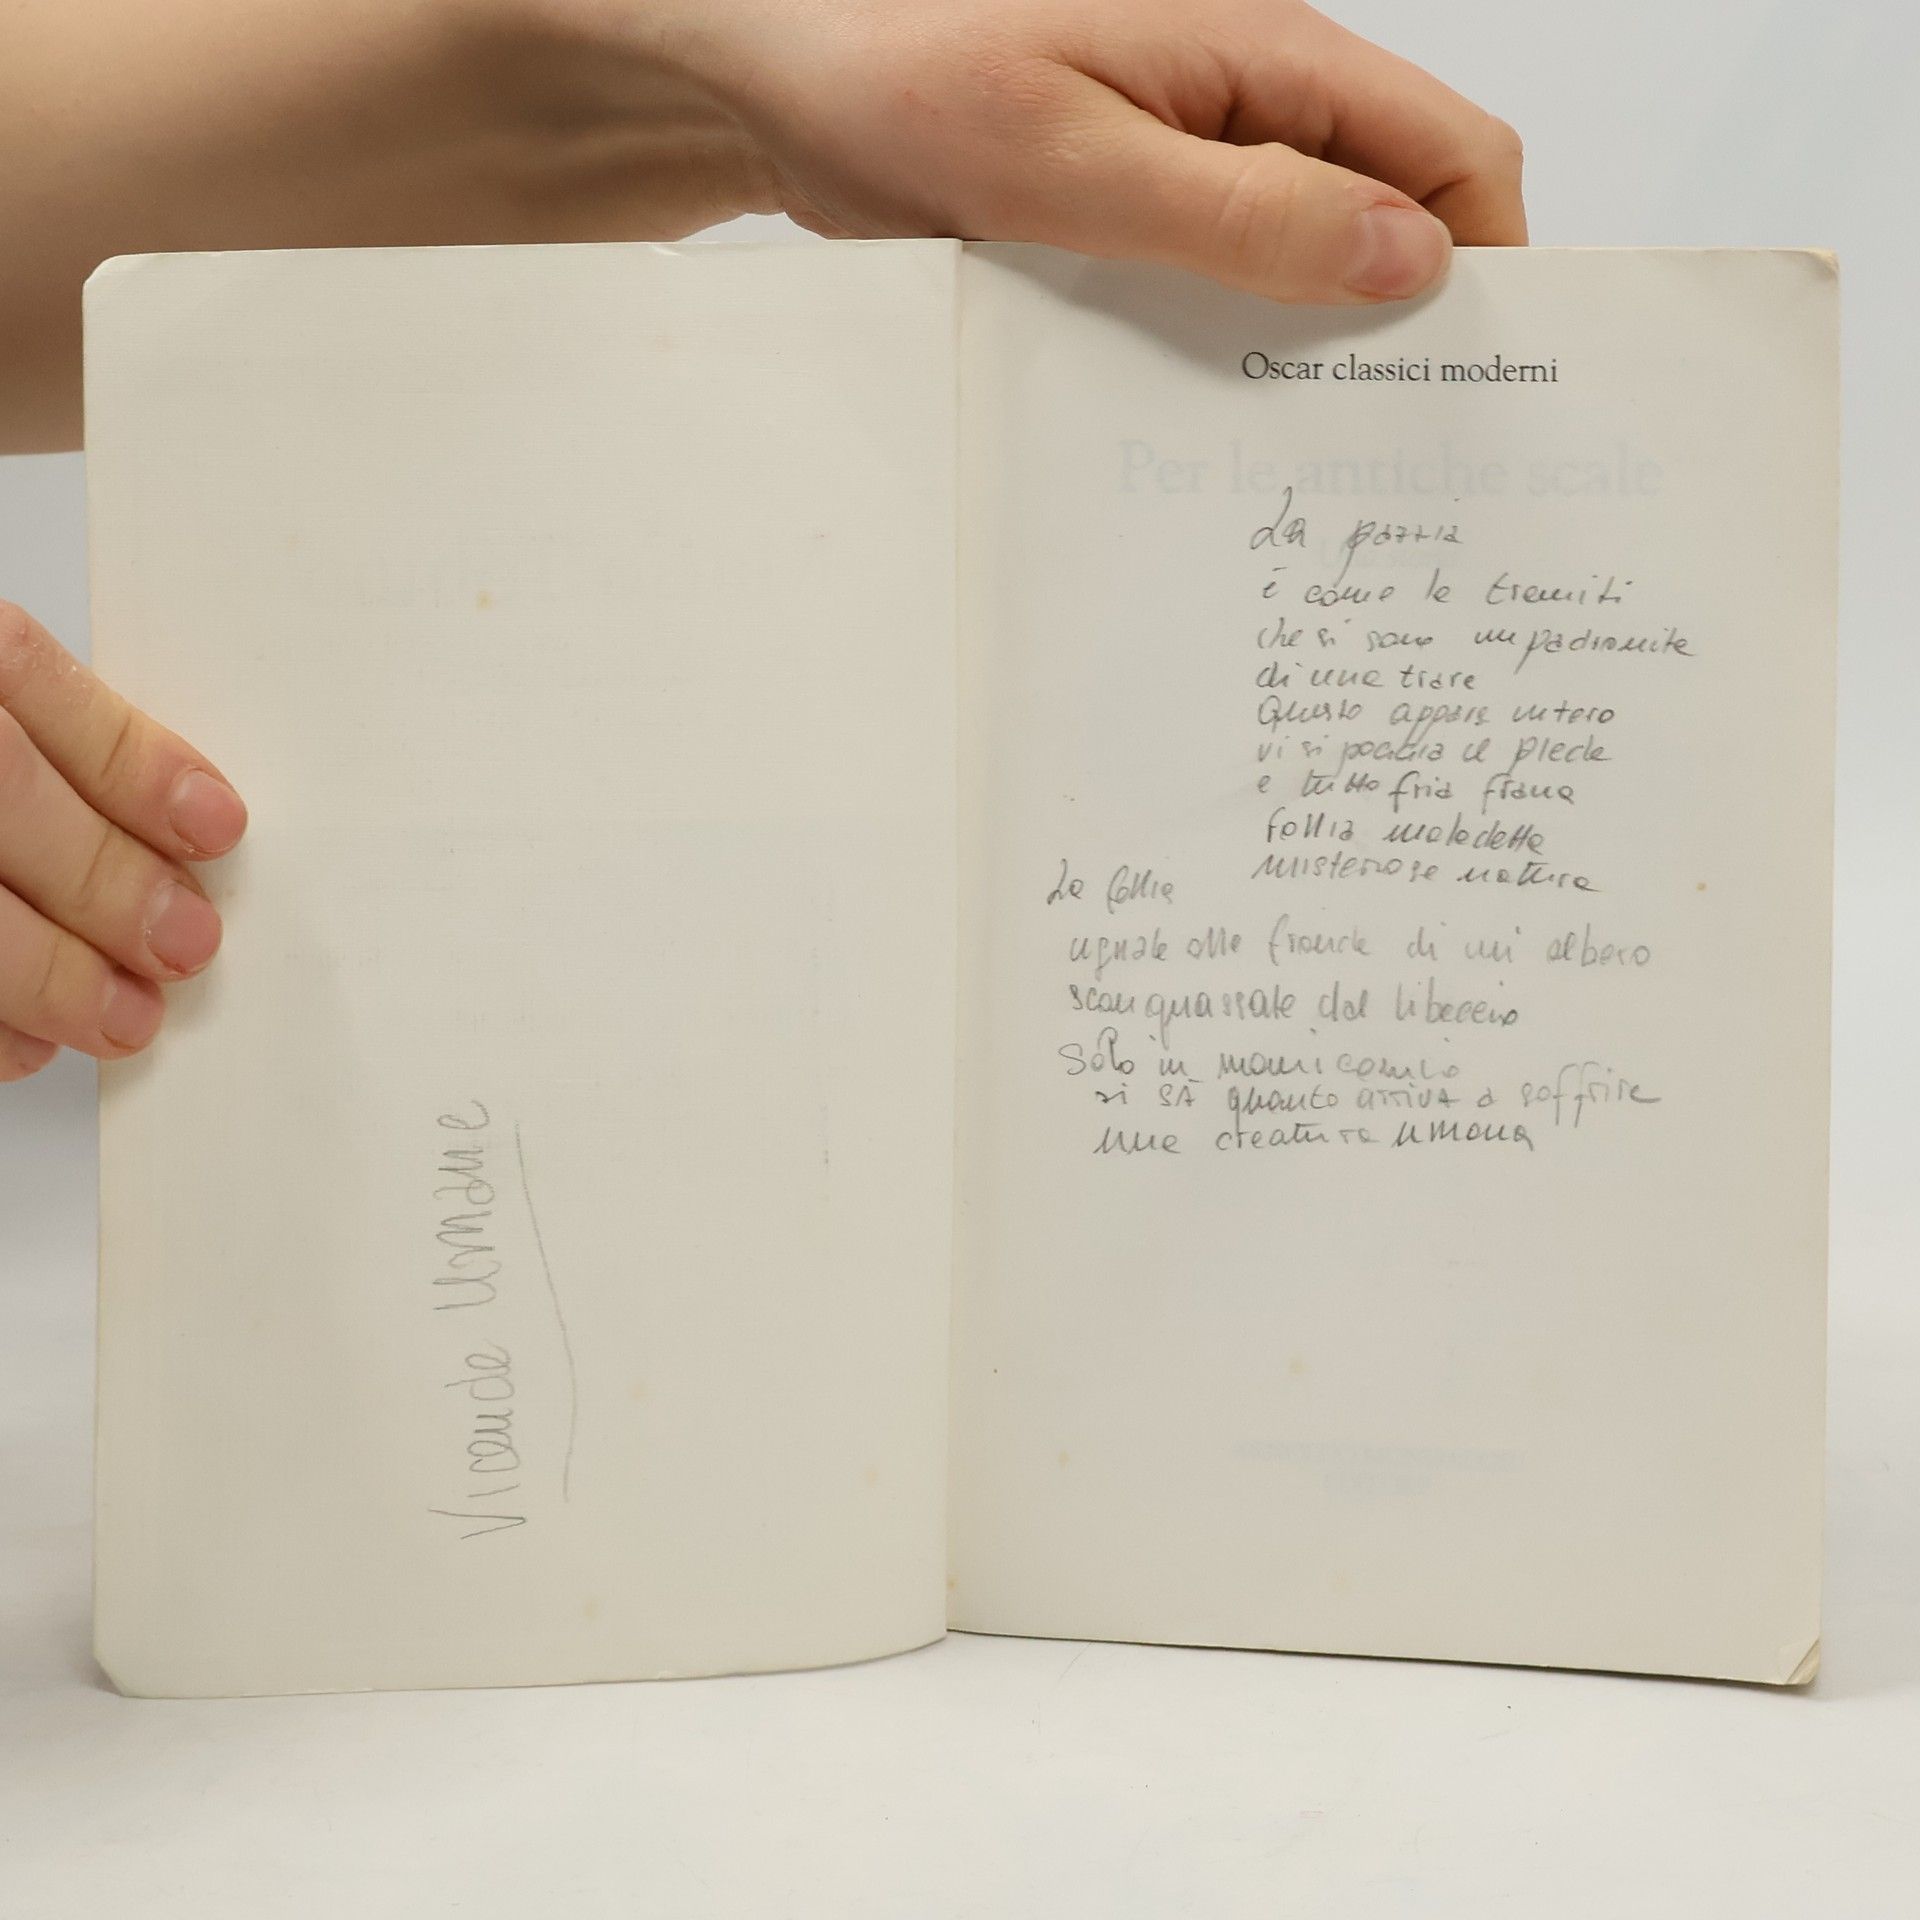 Vicende Umane
Oscar classici moderni
Per le antiche scale
La pazzia
è come le tremiti
che si sono impadronite
di una trave
Questo appare intero
vi si poggia il piede
e tutto fria frana
follia maledetta
misteriosa natura
La follia
uguale alle fronde di un' albero
scanquassate dal libeccio
Solo in manicomio
si sà quanto arriva a soffrire
una creatura umana